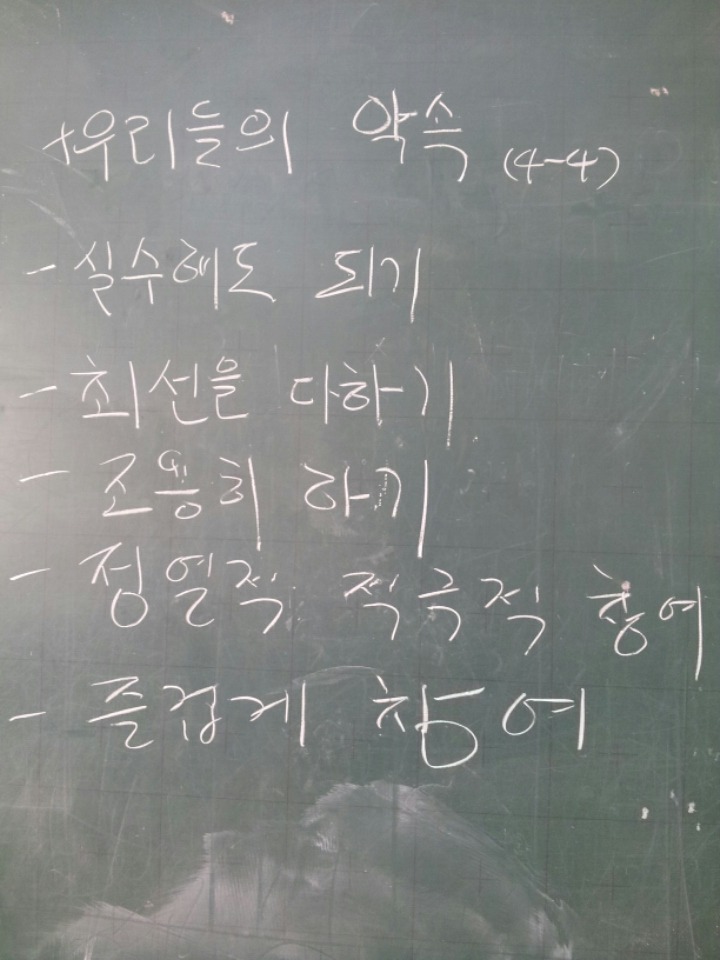 +우리들의 약속 (4-4)
- 실수해도 되기
- 최선을 다하기
- 조용히 하기
- 정열적 적극적 참여
- 즐겁게 참여